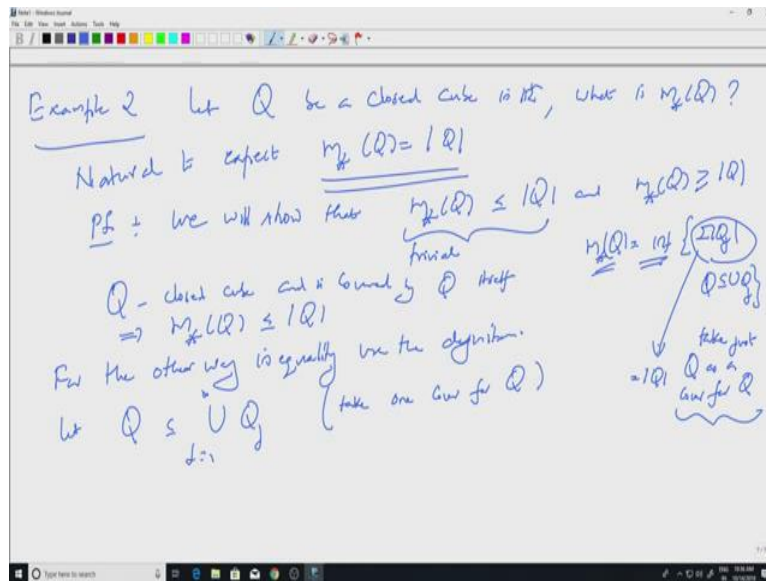 Note1 - Windows Journal
File Edit View Insert Actions Tools Help
Example 2 Let Q be a closed cube in ℝᵈ, what is m_*(Q)?
Natural to expect m_*(Q) = |Q|
Pf : We will show that m_*(Q) ≤ |Q| and m_*(Q) ≥ |Q|
trivial
m_*(Q) = inf { Σ|Q_j|
Q ⊆ ∪Q_j }
Q - closed cube and is covered by Q itself
⇒ m_*(Q) ≤ |Q|
= |Q|
take just
Q as a
cover for Q
For the other way inequality use the definition.
Let Q ⊆ ∪_{j=1}^∞ Q_j (take one cover for Q)
Type here to search